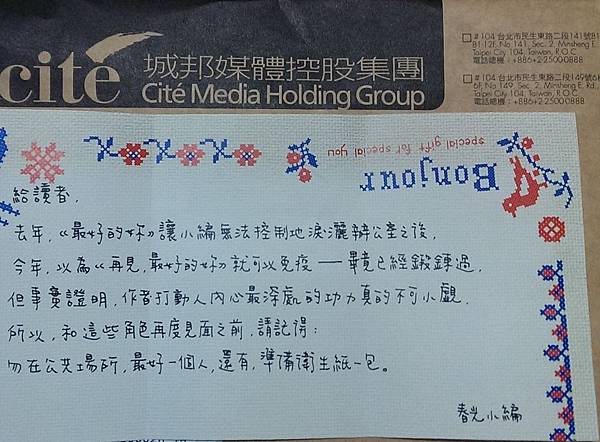 cité
城邦媒體控股集團
Cité Media Holding Group
#104 台北市民生東路二段141號B1
B1 12F, No 141, Sec. 2, Minsheng E.
Taipei City 104, Taiwan, R.O.C
電話總機：+886+2-25000888
#104 台北市民生東路二段149號6
6F, No 149, Sec. 2, Minsheng E. Rd.,
Taipei City 104, Taiwan, R.O.C
電話總機：+886+2-25000888
special gift for special you
Bonjour
給讀者，
去年，《最好的妳》讓小編無法控制地淚灑辦公室之後，
今年，以為《再見，最好的妳》就可以免疫——畢竟已經鍛鍊過，
但事實證明，作者打動人內心最深處的功力真的不可小覷，
所以，和這些角色再度見面之前，請記得：
勿在公共場所，最好一個人，還有，準備衛生紙一包。
春光小編